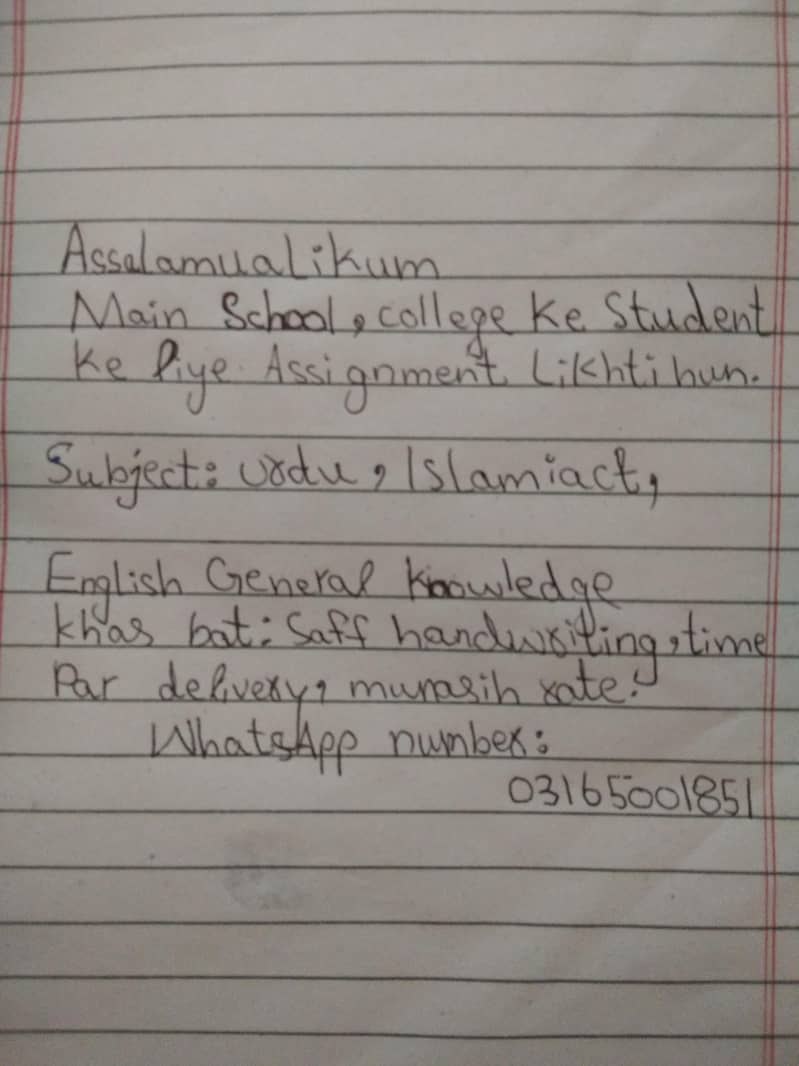 Assalamualikum
Main School, college ke Student
ke liye Assignment Likhti hun.
Subject: urdu, Islamiact,
English General Knowledge
khas bat: Saff handwriting, time
Par delivery, munasib rate.
WhatsApp number:
03165001851